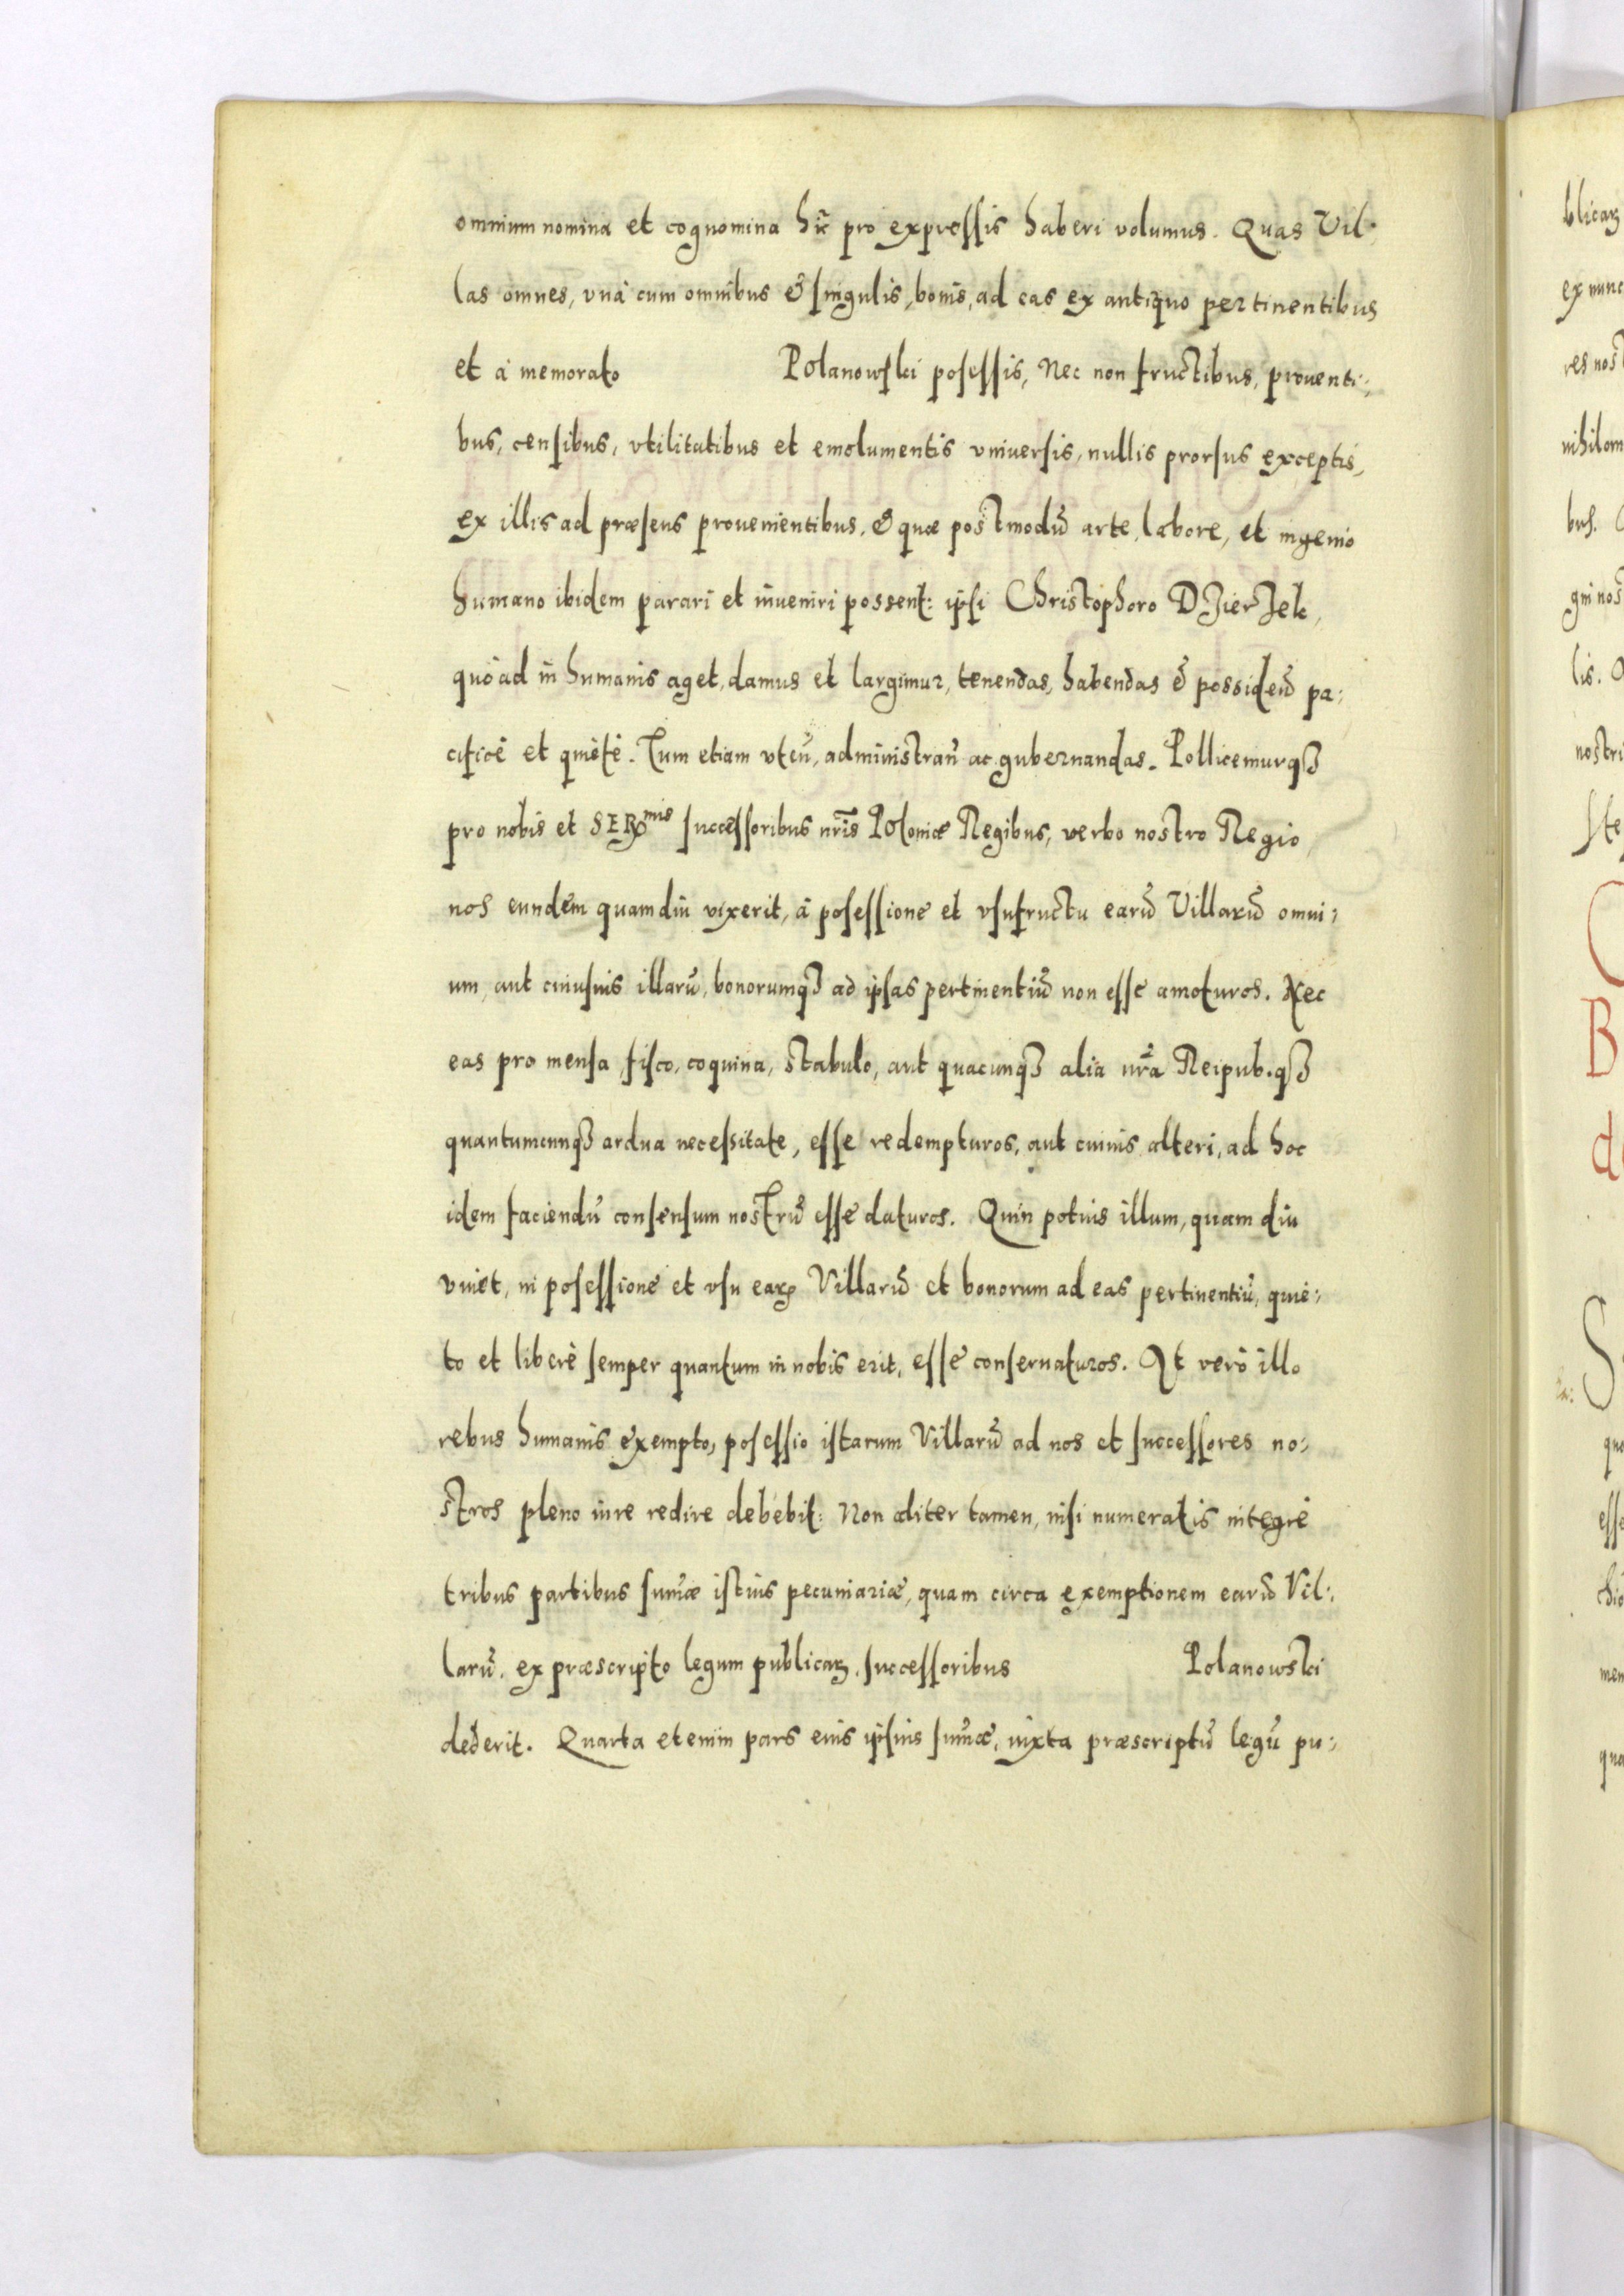 omnium nomina et cognomina hîc pro expreſſis haberi volumus. Quas Vil:
las omnes, vnà cum omnibus & ſingulis, bonis, ad eas ex antiquo pertinentibus
et à memorato Polanowſki poſeſſis, Nec non fructibus, prouenti:
bus, cenſibus, vtilitatibus et emolumentis vniuerſis, nullis prorſus exceptis,
ex illis ad præſens prouenientibus, & quæ postmodũ arte, labore, et ingenio
humano ibidem parari et inueniri possent: ipſi Christophoro DZierZek,
quòad in humanis aget, damus et largimur, tenendas, habendas & possideñ pa:
cificè et quietè. Tum etiam vteñ, administrañ ac gubernandas. Pollicemurqꝫ
pro nobis et SERmis ſucceſſoribus nrĩs Poloniæ Regibus, verbo nostro Regio,
nos eundem quamdiu vixerit, à poſeſſione et vſufructu earũ Villarũ omni:
um, aut cuiuſuis illarũ, bonorumqꝫ ad ipſas pertinentiũ non eſſe amoturos. Nec
eas pro menſa, fiſco, coquina, stabulo, aut quacunqꝫ alia nrã Reipub.qꝫ
quantumcunqꝫ ardua neceſsitate, eſſe redempturos, aut cuiuis alteri, ad hoc
idem faciendũ conſenſum nostrũ eſſe daturos. Quin potius illum, quam diu
viuet, in poſeſſione et vſu earꝝ Villarũ et bonorum ad eas pertinentiũ, quiè:
to et liberè ſemper quantum in nobis erit, eſſe conſeruaturos. At verò illo
rebus humanis exempto, poſeſſio iſtarum Villarũ ad nos et ſucceſſores no:
stros pleno iure redire debebit: Non aliter tamen, niſi numeratis integrè
tribus partibus ſum̃æ iſtius pecuniariæ, quam circa exemptionem earũ Vil:
larũ, ex præscripto legum publicaꝝ, ſucceſſoribus Polanowſki
dederit. Quarta etenim pars eius ipſius ſum̃æ, iuxta præscriptũ legũ pu: